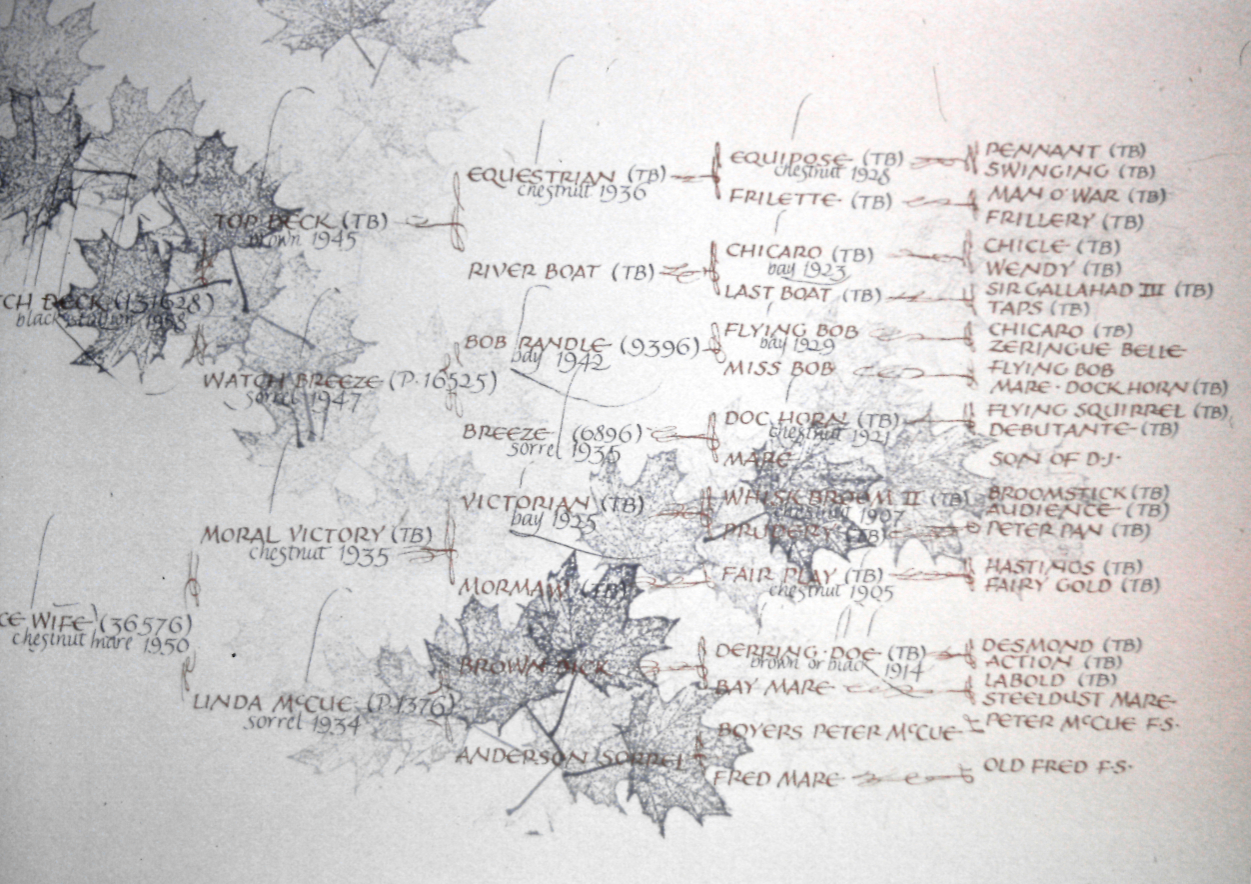 TOP DECK (TB)
brown 1945
DECK (151628)
black stallion 1958
WATCH BREEZE (P·16525)
sorrel 1947
MORAL VICTORY (TB)
chestnut 1935
WIFE (36576)
chestnut mare 1950
LINDA McCUE (P·1376)
sorrel 1934
EQUESTRIAN (TB)
chestnut 1936
RIVER BOAT (TB)
BOB RANDLE (9396)
bay 1942
BREEZE (6896)
sorrel 1935
VICTORIAN (TB)
bay 1925
MORMAW (TB)
BROWN DICK
ANDERSON SORREL
EQUIPOSE (TB)
chestnut 1928
FRILETTE (TB)
CHICARO (TB)
bay 1923
LAST BOAT (TB)
FLYING BOB
bay 1929
MISS BOB
DOC HORN (TB)
chestnut 1921
MARE
WHISK BROOM II (TB)
chestnut 1907
PRUDERY (TB)
FAIR PLAY (TB)
chestnut 1905
DERRING·DOE (TB)
brown or black 1914
BAY MARE
BOYERS PETER McCUE
FRED MARE
PENNANT (TB)
SWINGING (TB)
MAN O'WAR (TB)
FRILLERY (TB)
CHICLE (TB)
WENDY (TB)
SIR GALLAHAD III (TB)
TAPS (TB)
CHICARO (TB)
ZERINGUE BELLE
FLYING BOB
MARE·DOCK HORN (TB)
FLYING SQUIRREL (TB)
DEBUTANTE (TB)
SON OF D·J·
BROOMSTICK (TB)
AUDIENCE (TB)
PETER PAN (TB)
HASTINGS (TB)
FAIRY GOLD (TB)
DESMOND (TB)
ACTION (TB)
LABOLD (TB)
STEELDUST MARE
PETER McCUE F·S·
OLD FRED F·S·